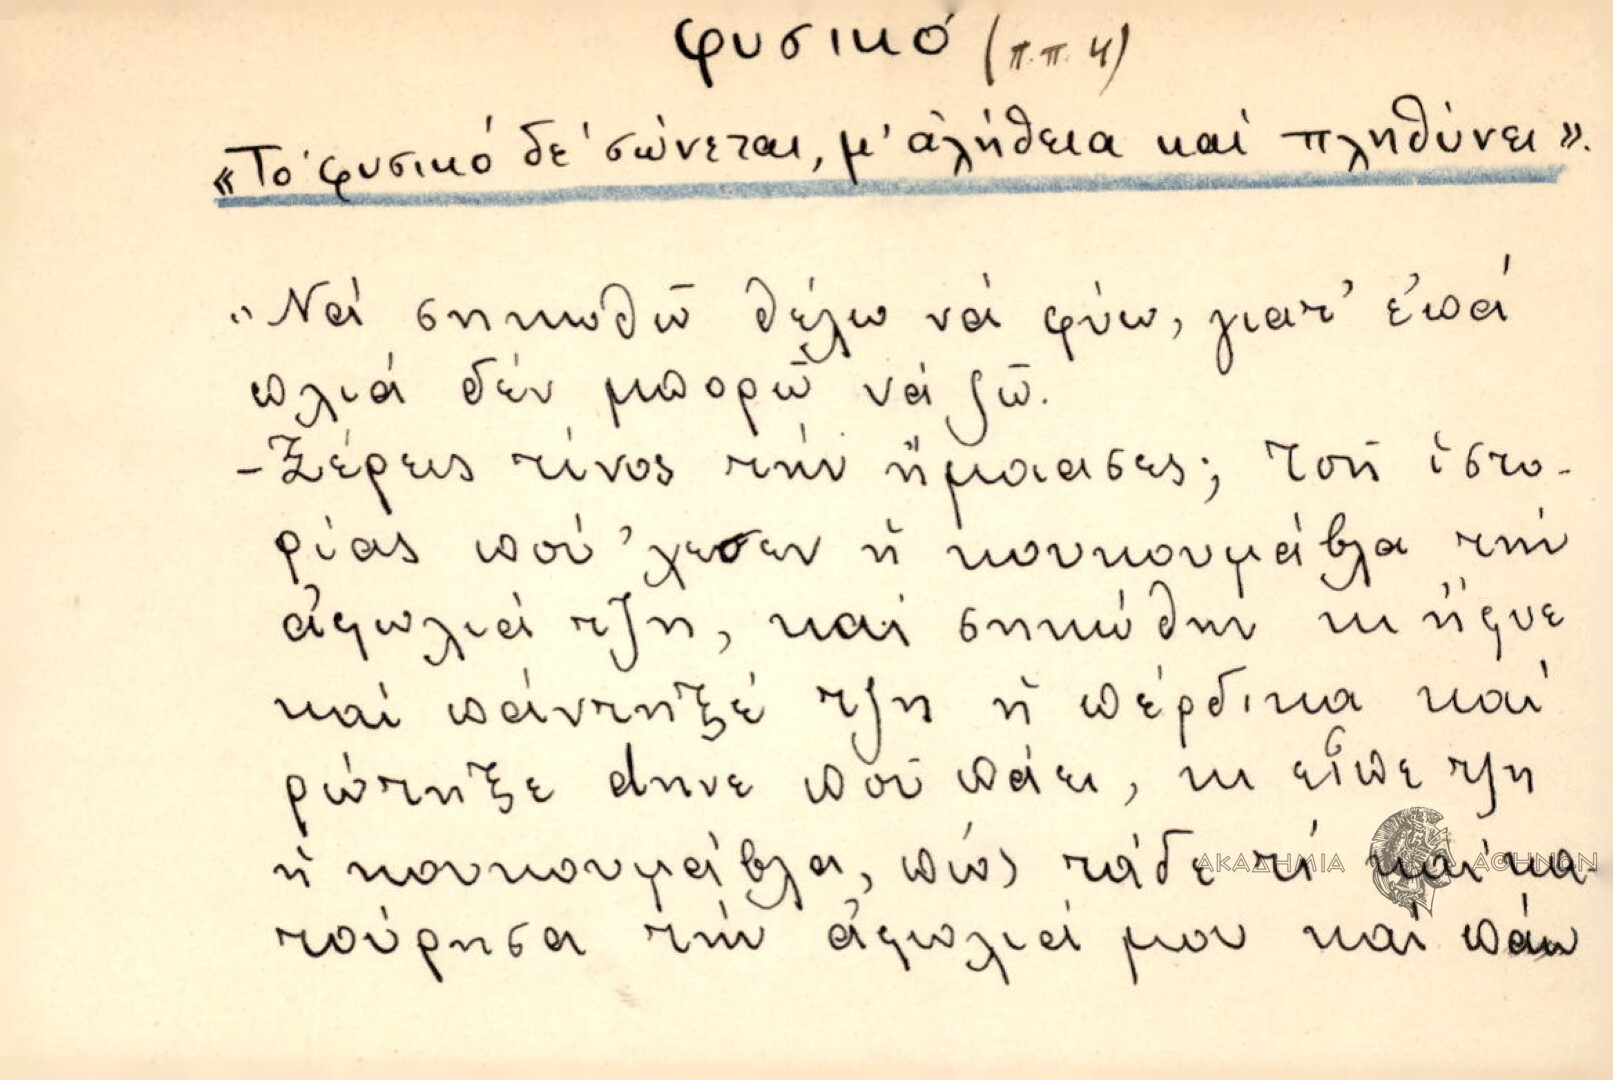 φυσικό (π.π. 4)
«Το φυσικό δε σώνεται, μ' αλήθεια καί πληθύνει».
"Νά σηκωθῶ θέλω νά φύω, γιατ' ἐπά
πλιά δέν μπορῶ νά ζῶ.
-Ξέρεις τίνος τήν ἤμοιασες; Τσῆ ἱστο-
ρίας πού 'χεσεν ἡ κουκουμάβλα τήν
ἀφωλιά τζη, καί σηκώθην κι ἤφυε
καί πάντηξέ τζη ἡ πέρδικα καί
ρώτηξε dηνε ποῦ πάει, κι εἶπε τζη
ἡ κουκουμάβλα, πώς τάδε τί καί κα-
τούρησα τήν ἀφωλιά μου καί πάω
ΑΚΑΔΗΜΙΑ ΑΘΗΝΩΝ